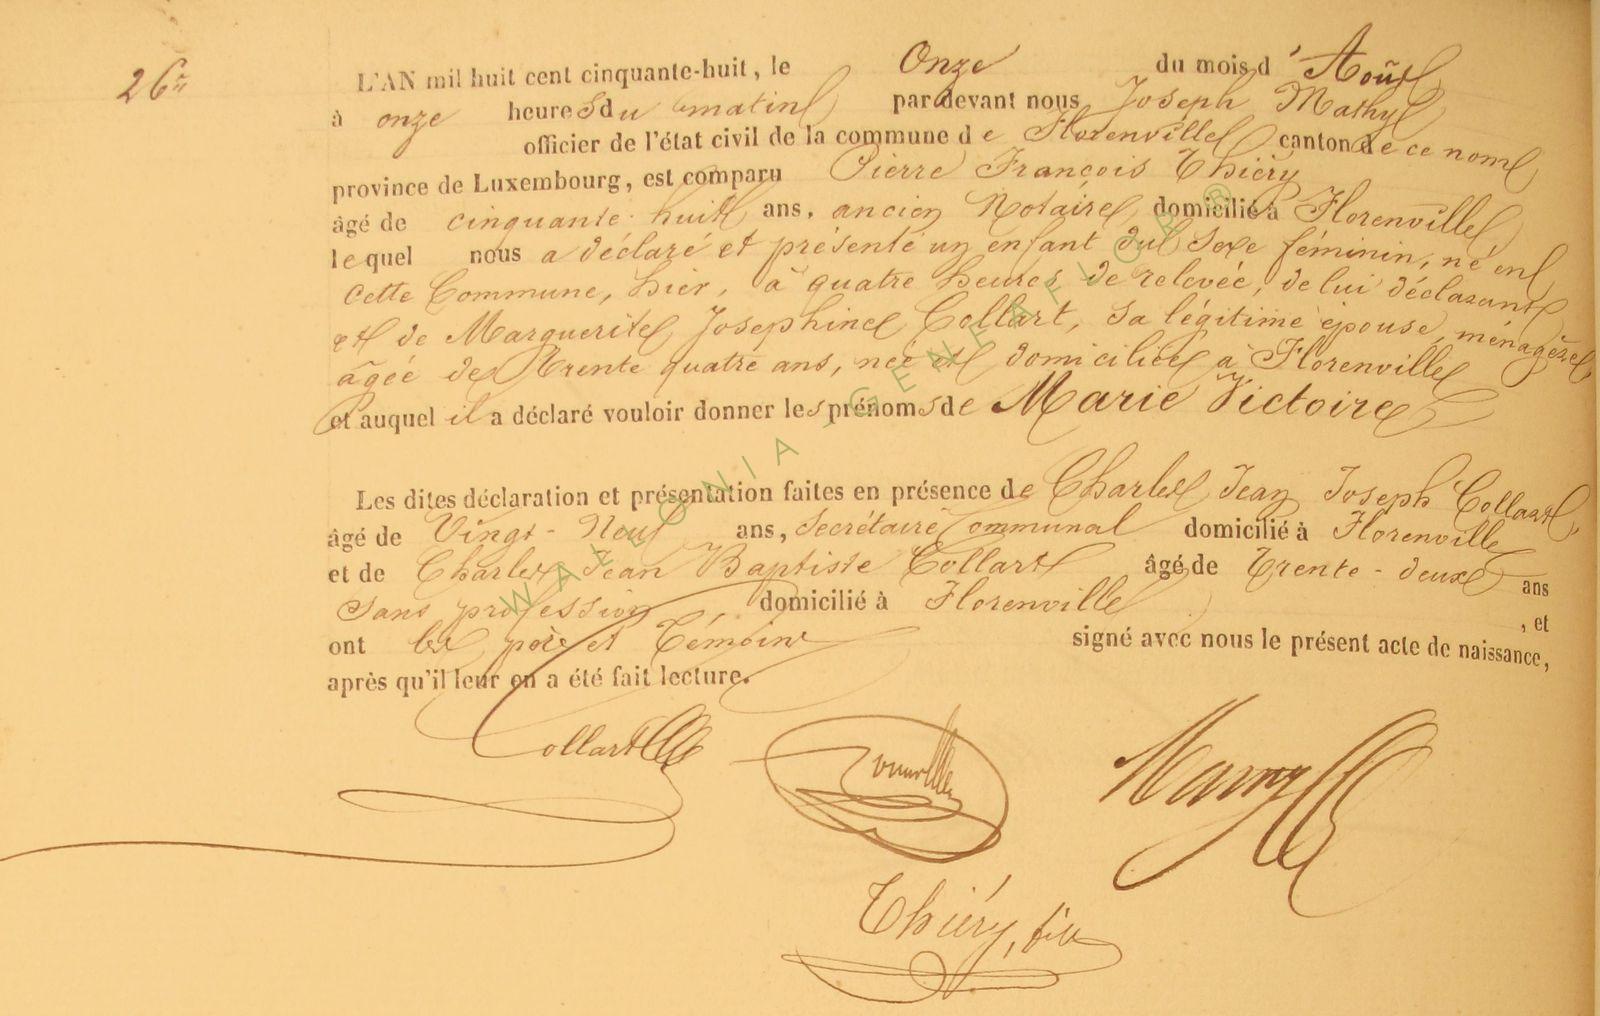 26
L'AN mil huit cent cinquante-huit, le Onze du mois d'Août
à onze heures du matin par devant nous Joseph Mathy
officier de l'état civil de la commune de Florenville canton de ce nom
province de Luxembourg, est comparu Pierre François Thiéry
âgé de cinquante-huit ans, ancien Notaire domicilié à Florenville,
lequel nous a déclaré et présenté un enfant du sexe féminin, né en
cette Commune, hier, à quatre heures de relevée, de lui déclarant
et de Marguerite Josephine Collart, sa légitime épouse, ménagère,
âgée de Trente quatre ans, née et domiciliée à Florenville
et auquel il a déclaré vouloir donner les prénoms de Marie Victoire
Les dites déclaration et présentation faites en présence de Charles Jean Joseph Collart,
âgé de Vingt-Neuf ans, secrétaire Communal domicilié à Florenville
et de Charles Jean Baptiste Collart âgé de Trente-deux ans
sans profession, domicilié à Florenville, et
ont les père et Témoins signé avec nous le présent acte de naissance,
après qu'il leur en a été fait lecture.
Collart
Thiéry, fils
WALLONIA GENEAFICBB